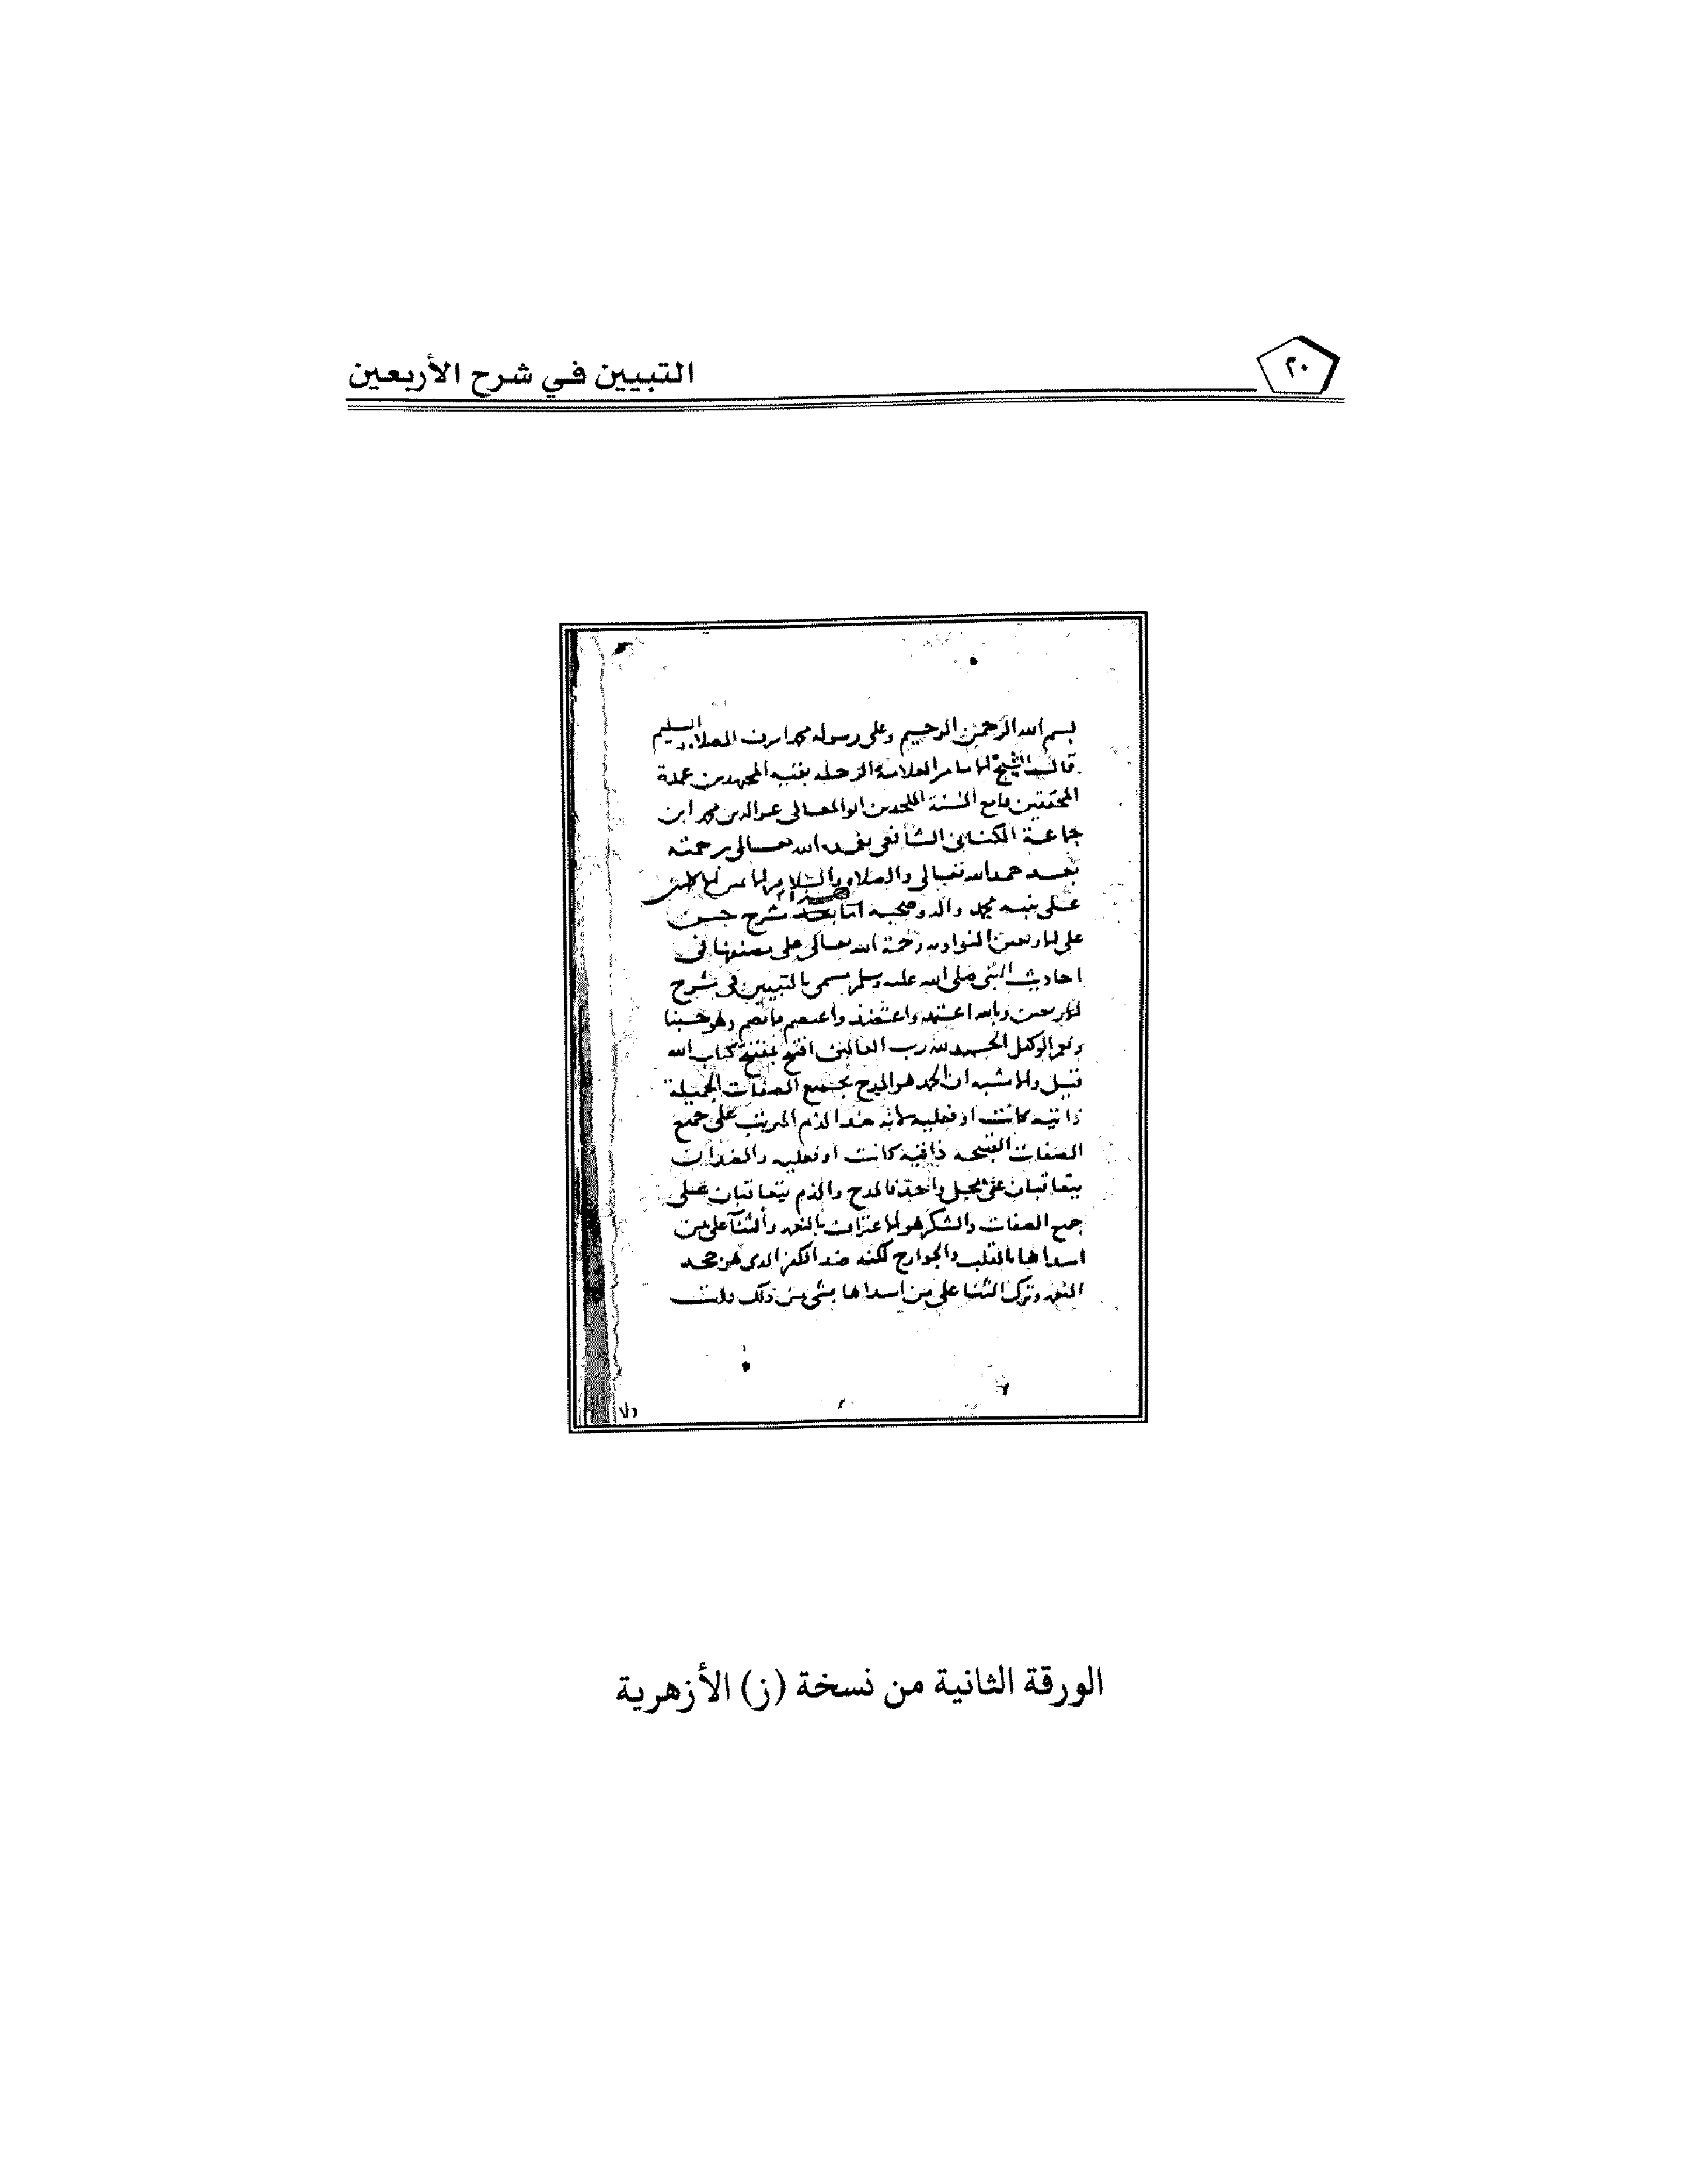 ٢٠
التبيين في شرح الأربعين
بسم الله الرحمن الرحيم وعلى رسوله محمد الصلاه والتسليم
قال الشيخ الامام العلامة الرحله بقيه المجتهدين عمدة
المحققين قامع السنة ابو المعالى عز الدين محمد ابن
جماعة الكنانى الشافعى تغمده الله تعالى برحمته
بعد حمد الله تعالى والصلاه والسلام
على نبيه محمد واله وصحبه اما بعد شرح حسن
على الاربعين النواويه رحمة الله تعالى على مصنفها فى
احاديث النبى صلى الله عليه وسلم مسمى بالتبيين فى شرح
الاربعين وبالله اعتمد واعتضد واعتصم وهو حسبنا
ونعم الوكيل الحمد لله رب العالمين افتتح كتاب الله
قيل والاشبه ان الحمد هو المدح بجميع الصفات الجميلة
ذاتيه كانت او فعليه لانه ضد الذم المرتب على جميع
الصفات القبيحه ذاتيه كانت او فعليه والضدان
يتعاقبان على محل واحد فالمدح والذم يتعاقبان على
جميع الصفات والشكر هو الاعتراف بالنعمه والثنا على من
اسداها بالقلب والجوارح لكنه ضد الكفر الذى هو جحد
النعمه وترك الثنا على من اسداها بشى من ذلك قلت
ولا
الورقة الثانية من نسخة (ز) الأزهرية